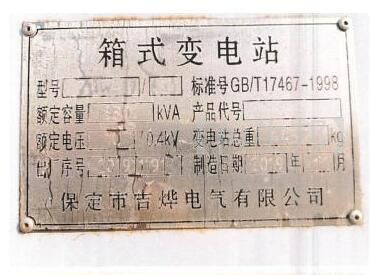 箱式变电站
型号 / 标准号GB/T17467-1998
额定容量 kVA 产品代号
额定电压 /0.4kV 变电站总重 kg
出厂序号 制造日期 年 月
保定市吉烨电气有限公司